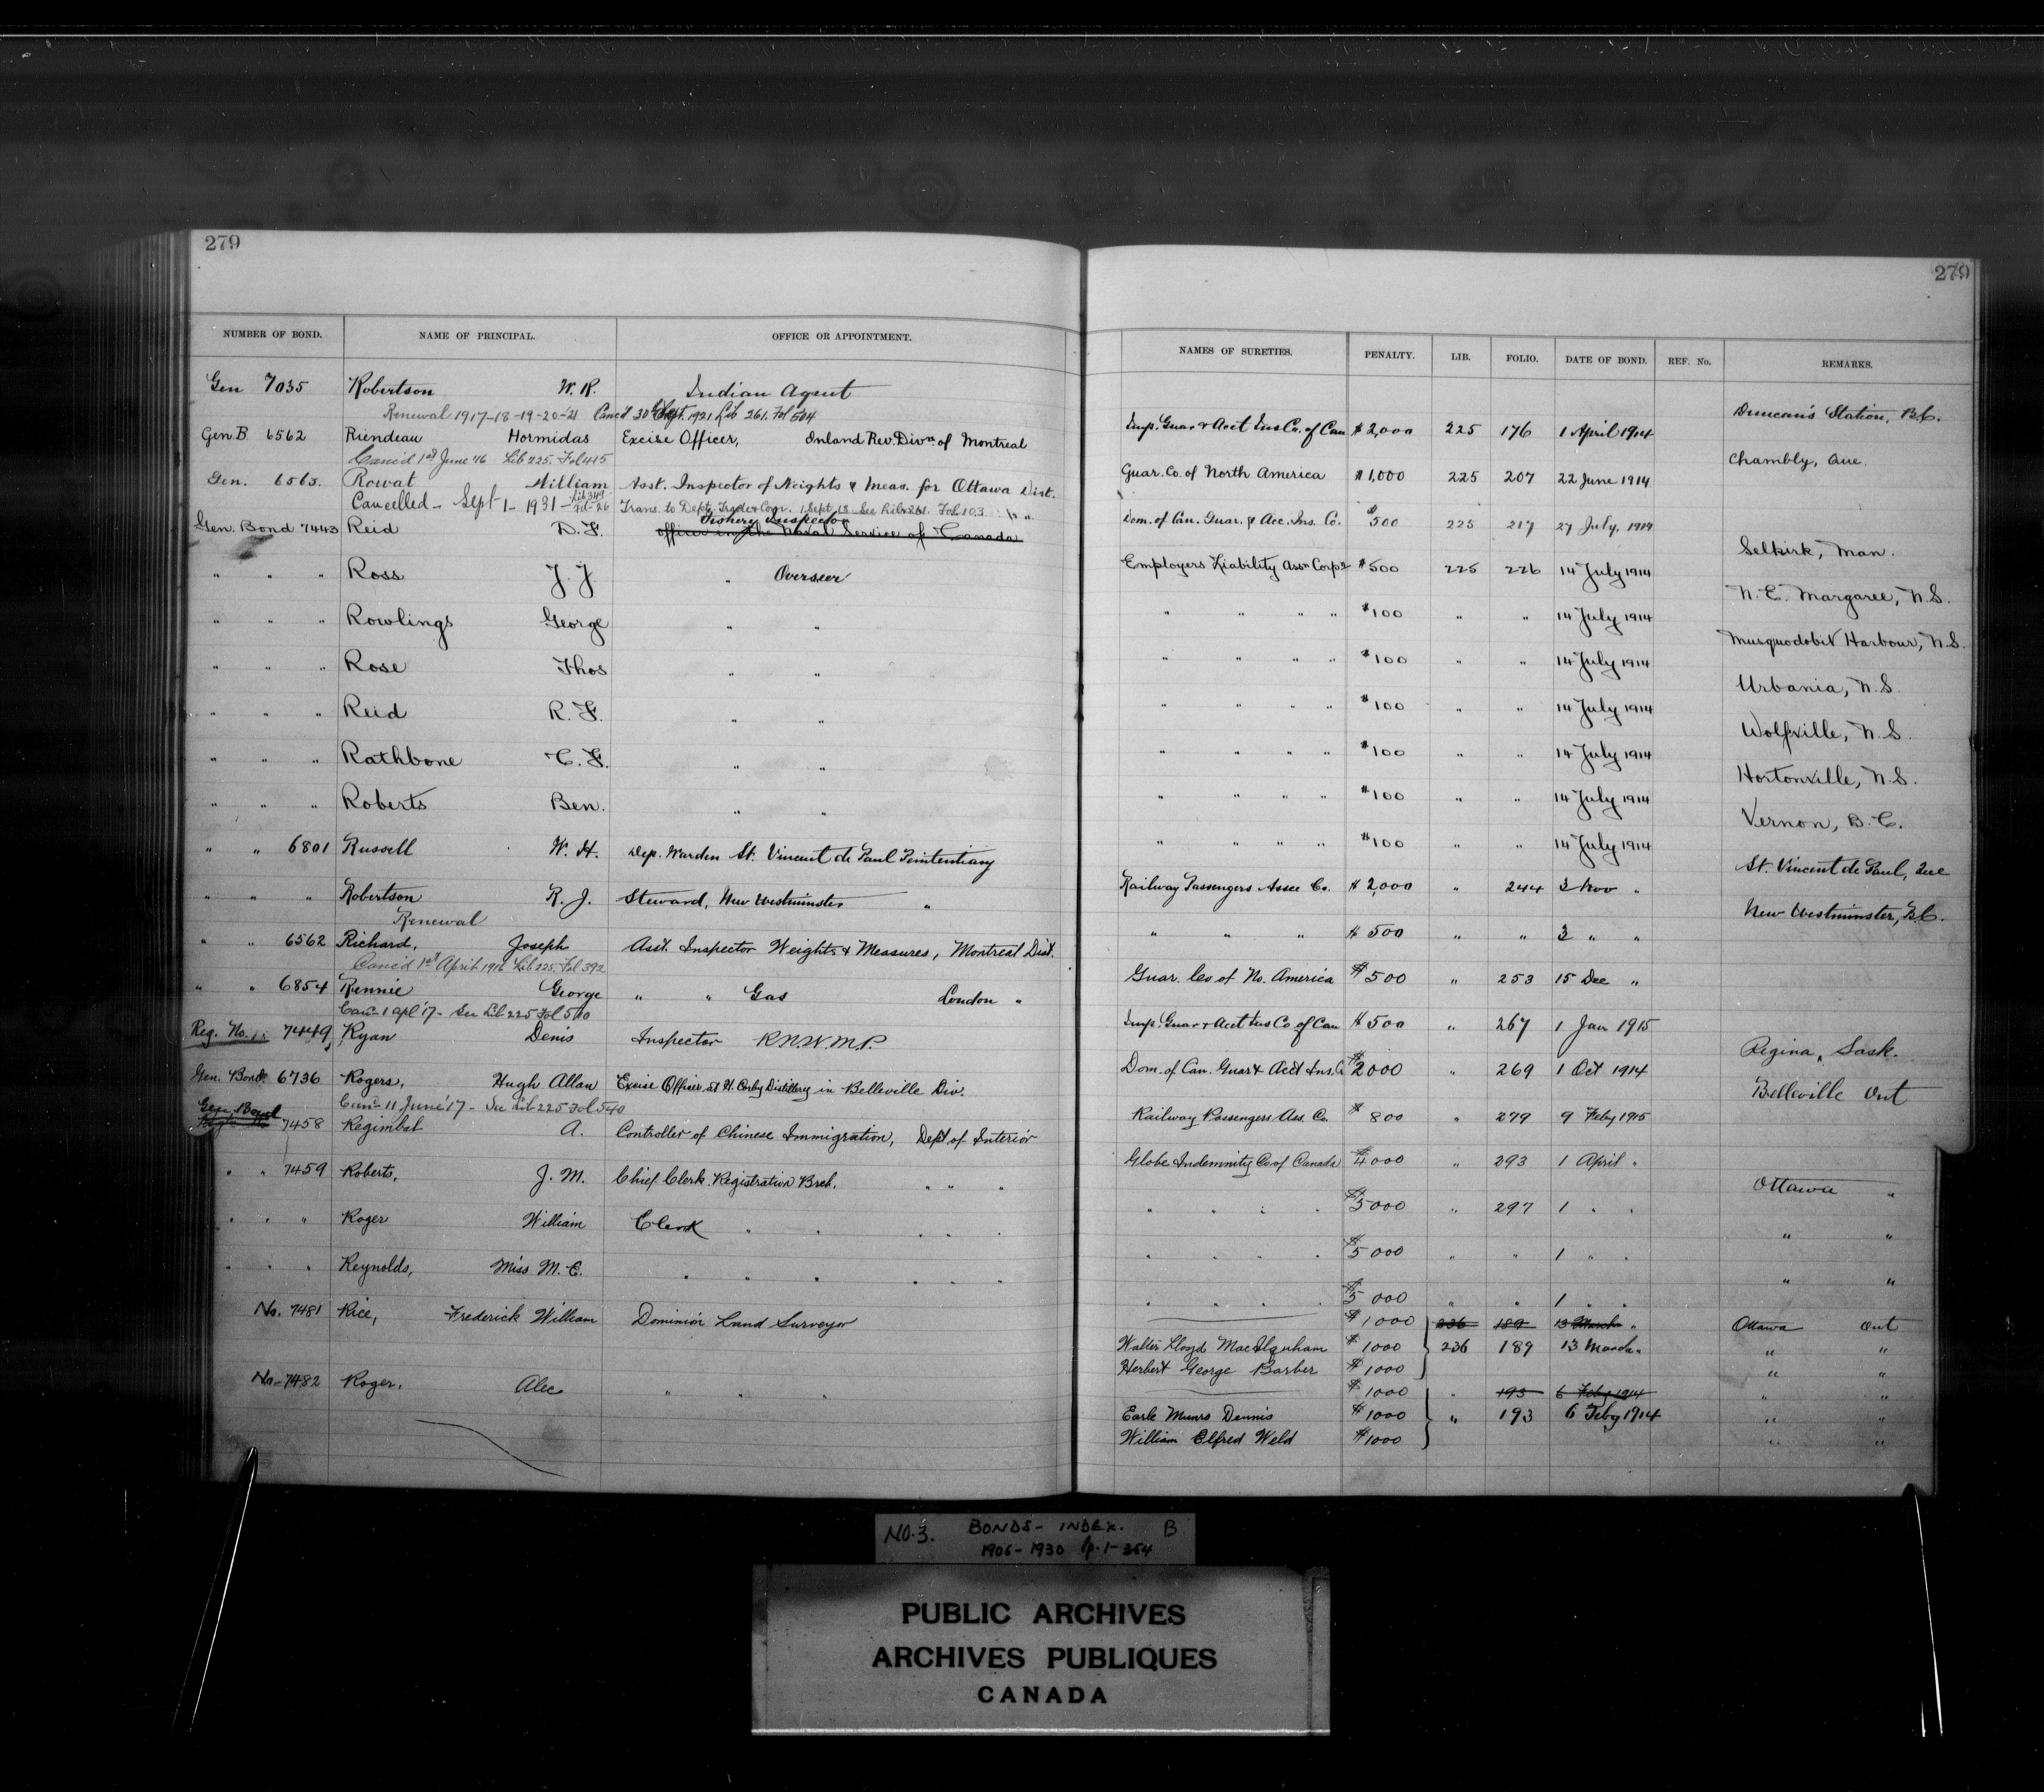 279
279
NUMBER OF BOND. NAME OF PRINCIPAL. OFFICE OR APPOINTMENT. NAMES OF SURETIES. PENALTY. LIB. FOLIO. DATE OF BOND. REF. No. REMARKS.
Gen 7035 Robertson W. R. Indian Agent Imp. Guar. & Acct Ins Co. of Can $2,000 225 176 1 April 1914 Duncan's Station, B.C.
Renewal 1917-18-19-20-21 Canc'd 30 Sept. 1921 Lib 261. Fol 504
Gen. B. 6562 Riendeau Hormidas Excise Officer, Inland Rev. Divn. of Montreal Guar. Co. of North America $1,000 225 207 22 June 1914 Chambly, Que.
Canc'd 1st June '16 Lib 225. Fol 415
Gen. 6563. Rowat William Asst. Inspector of Weights & Meas. for Ottawa Dist. Dom. of Can. Guar. & Acc. Ins. Co. $500 225 217 27 July, 1914
Cancelled - Sept 1 - 1931 - Lib 349 Fol- 26 Trans. to Dept. Trade & Com. 1 Sept. 18 See Lib 261. Fol. 103
Fishery Inspector
Gen. Bond 7443 Reid D. F. Officer in the Naval Service of Canada Employers Liability Assn Corpn $500 225 226 14 July 1914 Selkirk, Man.
" " " Ross J. J " Overseer " " " " $100 " " 14 July 1914 N. E. Margaree, N.S.
" " " Rowlings George " " " " " " $100 " " 14 July 1914 Musquodobit Harbour, N.S.
" " " Rose Thos " " " " " " $100 " " 14 July 1914 Urbania, N.S.
" " " Reid R. F. " " " " " " $100 " " 14 July 1914 Wolfville, N.S.
" " " Rathbone C. F. " " " " " " $100 " " 14 July 1914 Hortonville, N.S.
" " " Roberts Ben. " " " " " " $100 " " 14 July 1914 Vernon, B.C.
" " 6801 Russell W. H. Dep. Warden St. Vincent de Paul Penitentiary Railway Passengers Assce Co. $2,000 " 244 3 Nov " St. Vincent de Paul, Que
" " " Robertson R. J. Steward, New Westminster " " " " $500 " " 3 " " New Westminster, B.C.
Renewal
" " 6562 Richard, Joseph Asst. Inspector Weights & Measures, Montreal Dist. Guar. Co of No. America $500 " 253 15 Dec "
Canc'd 1st April 1916 Lib 225. Fol 392
" " 6854 Rennie George " " Gas London " Imp. Guar & Acct Ins Co of Can $500 " 267 1 Jan 1915
Canc. 1 Apl '17 - See Lib 225 Fol 510
Reg. No. 7449 Ryan Denis Inspector R.N.W.M.P. Dom. of Can. Guar & Acct Ins. C $2000 " 269 1 Oct 1914 Regina, Sask.
Gen. Bond 6736 Rogers, Hugh Allan Excise Officer at H. Corby Distillery in Belleville Div. Railway Passengers Ass. Co. $800 " 279 9 Feby 1915 Belleville Ont
Canc. 11 June '17 - See Lib 225 Fol 540
Gen. Bond
7458 Regimbal A. Controller of Chinese Immigration, Dept of Interior Globe Indemnity Co of Canada $4000 " 293 1 April "
" " 7459 Roberts, J. M. Chief Clerk Registration Brch. " " " " " " " $5000 " 297 1 " " Ottawa "
" " " Roger William Clerk " " " " " " " " " $5000 " " 1 " " " "
" " " Reynolds, Miss M. E. " " " " " " " " " " $5000 " " 1 " " " "
No. 7481 Rice, Frederick William Dominion Land Surveyor $1000 236 189 13 March " Ottawa Ont
Walter Lloyd $1000 236 189 13 March " " "
Herbert George Barber $1000 " "
No. 7482 Roger, Alec " " " $1000 " 193 6 Feby 1914 " "
Earle Munro Dennis $1000 " 193 6 Feby 1914 " "
William Elfred Weld $1000 " "
NO. 3. BONDS - INDEX. B
1906-1930 p. 1-354
PUBLIC ARCHIVES
ARCHIVES PUBLIQUES
CANADA